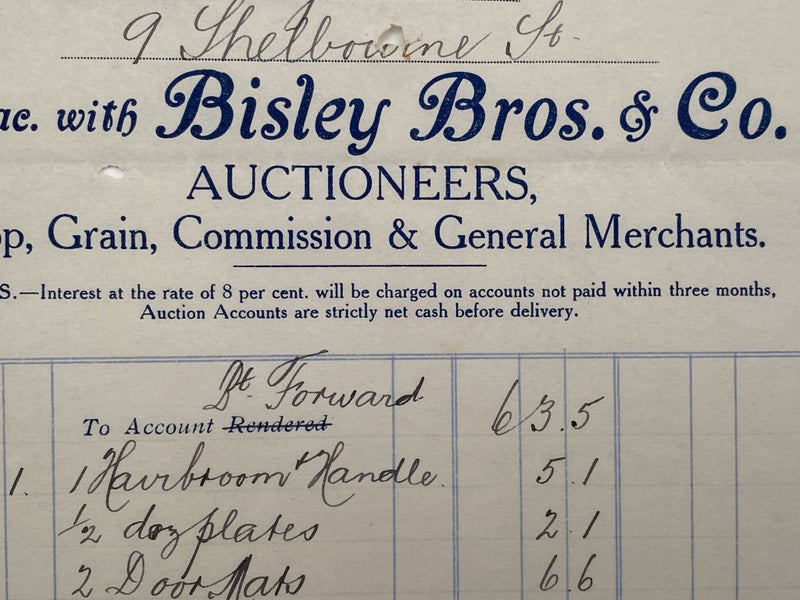 9 Shelbourne St.
ac. with Bisley Bros. & Co.
AUCTIONEERS,
op, Grain, Commission & General Merchants.
S.—Interest at the rate of 8 per cent. will be charged on accounts not paid within three months,
Auction Accounts are strictly net cash before delivery.
Bt. Forward
To Account Rendered 63.5
1. 1 Hairbroom & Handle. 5.1
1/2 doz plates 2.1
2 Door Mats 6.6